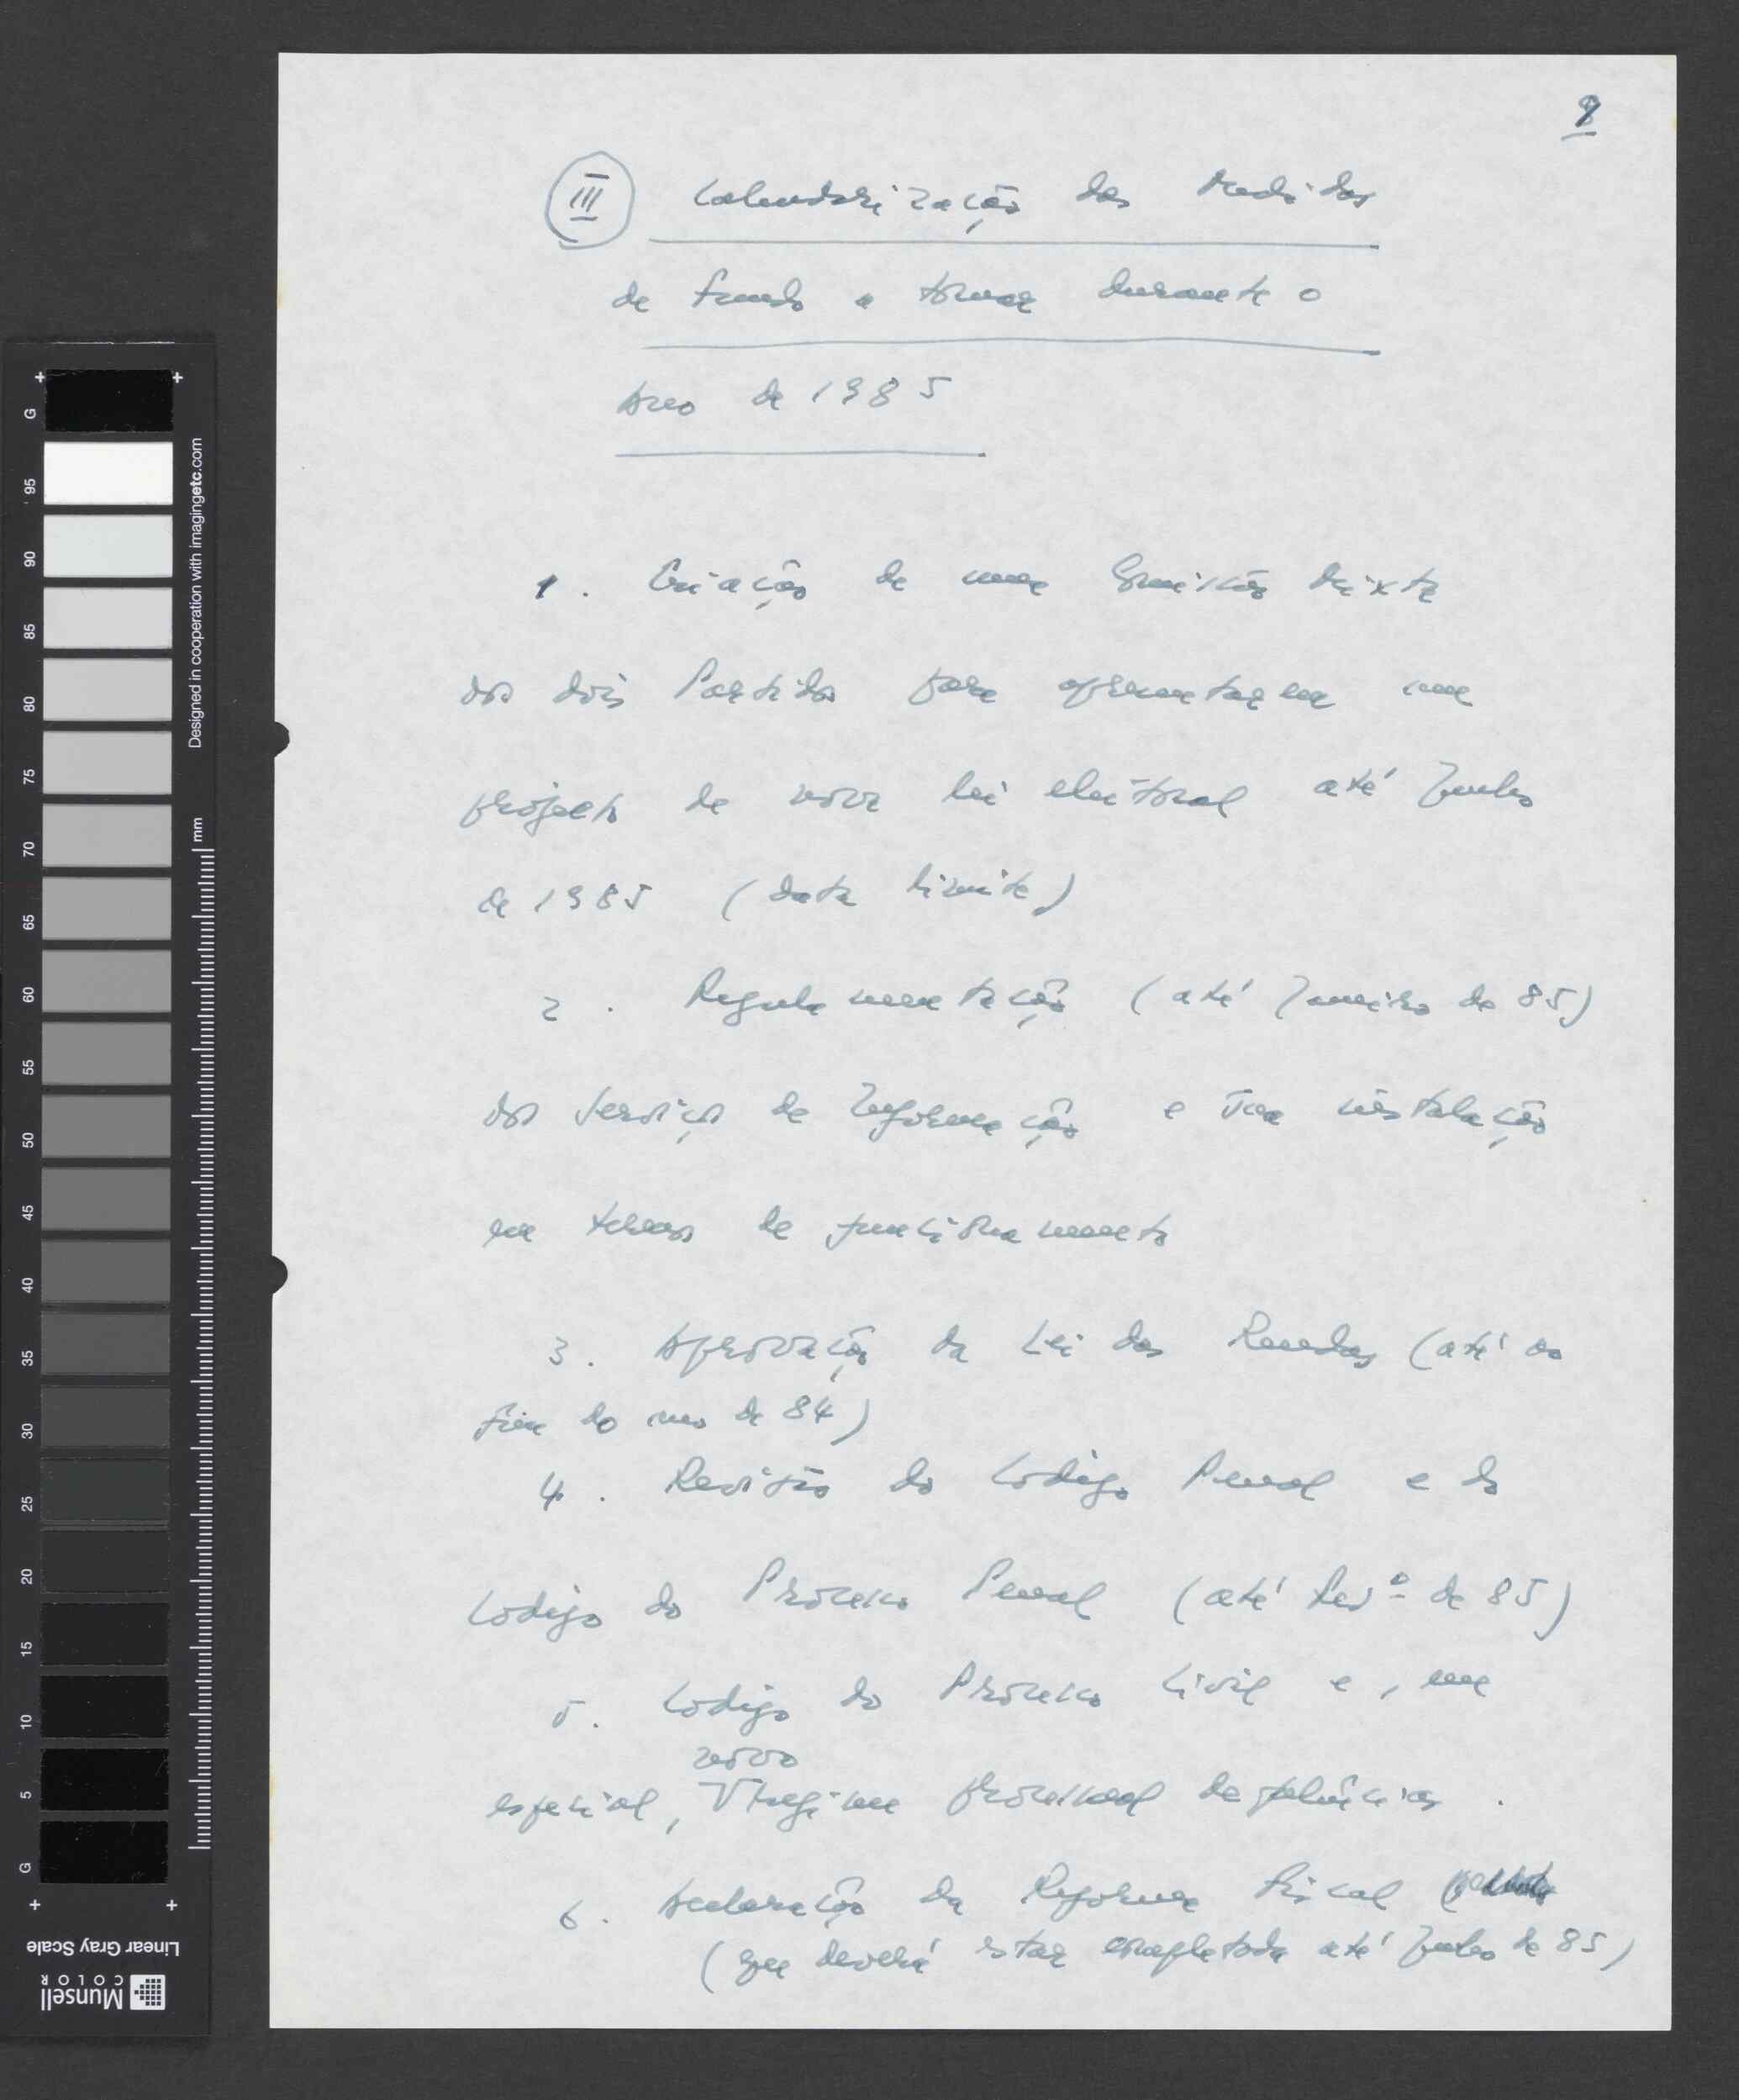 8
III Calendarização das Medidas
de fundo a tomar durante o
Ano de 1985
1. Criação de uma Comissão Mixta
dos dois Partidos para apresentarem um
projecto de nova lei eleitoral até Junho
de 1985 (data limite)
2. Regulamentação (até Janeiro de 85)
dos Serviços de Informação e sua instalação
em termos de funcionamento
3. Aprovação da Lei das Rendas (até ao
fim do ano de 84)
4. Revisão do Codigo Penal e do
Codigo do Processo Penal (até Fevº de 85)
5. Codigo do Processo Civil e, em
novo
especial, V regime processual de falências.
6. Aceleração da Reforma Fiscal
(que deverá estar completada até Junho de 85)
G 95 90 85 80 75 70 65 60 55 50 45 40 35 30 25 20 15 10 5 G
Designed in cooperation with imagingetc.com
mm
Linear Gray Scale
Munsell
COLOR